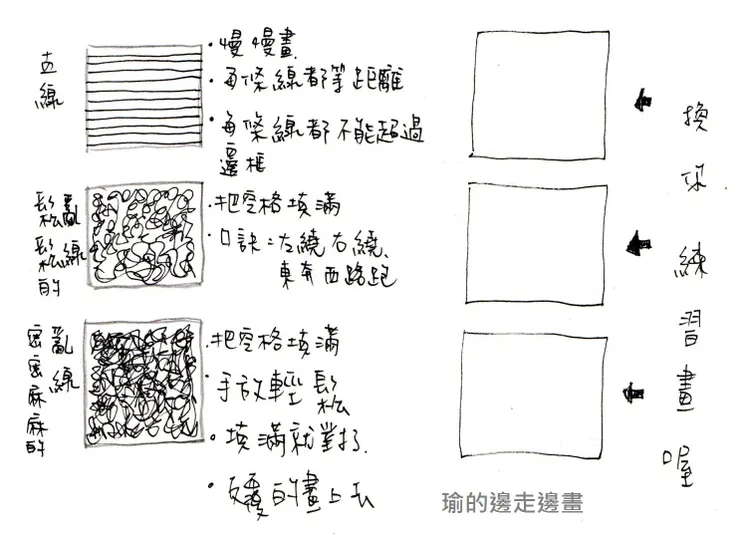 直線
・慢慢畫
・每條線都等距離
・每條線都不能超過
邊框
鬆鬆的
亂線
・把空格填滿
・口訣：左繞右繞、
東奔西路跑
密密麻麻的
亂線
・把空格填滿
・手放輕鬆
・填滿就對了.
・反覆的畫上去
換你練習畫喔
瑜的邊走邊畫